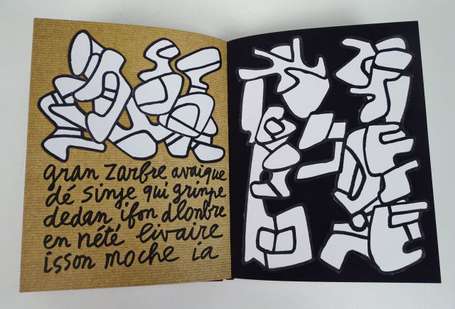 gran zarbre avaique
dé sinje qui grinpe
dedan ifon dlonbre
en niété livaire
isson moche ia